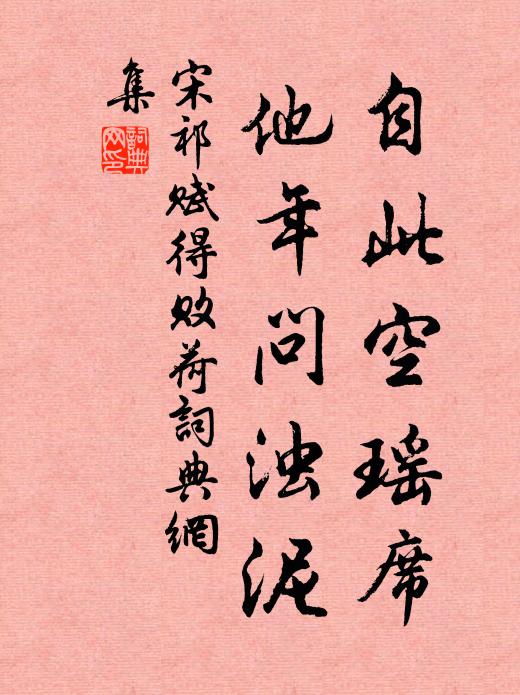 自此空瑶席
他年问浊泥
宋祁赋得败荷詞典網
集
詞典
网印